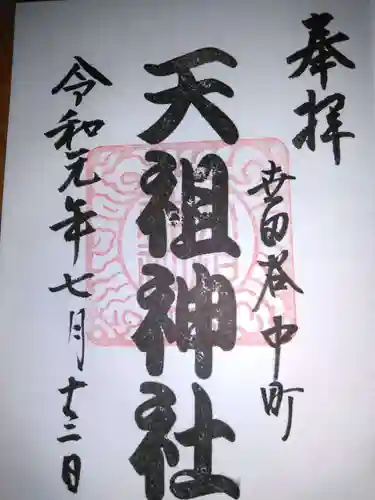 奉拝
世田谷中町
天祖神社
令和元年七月十二日